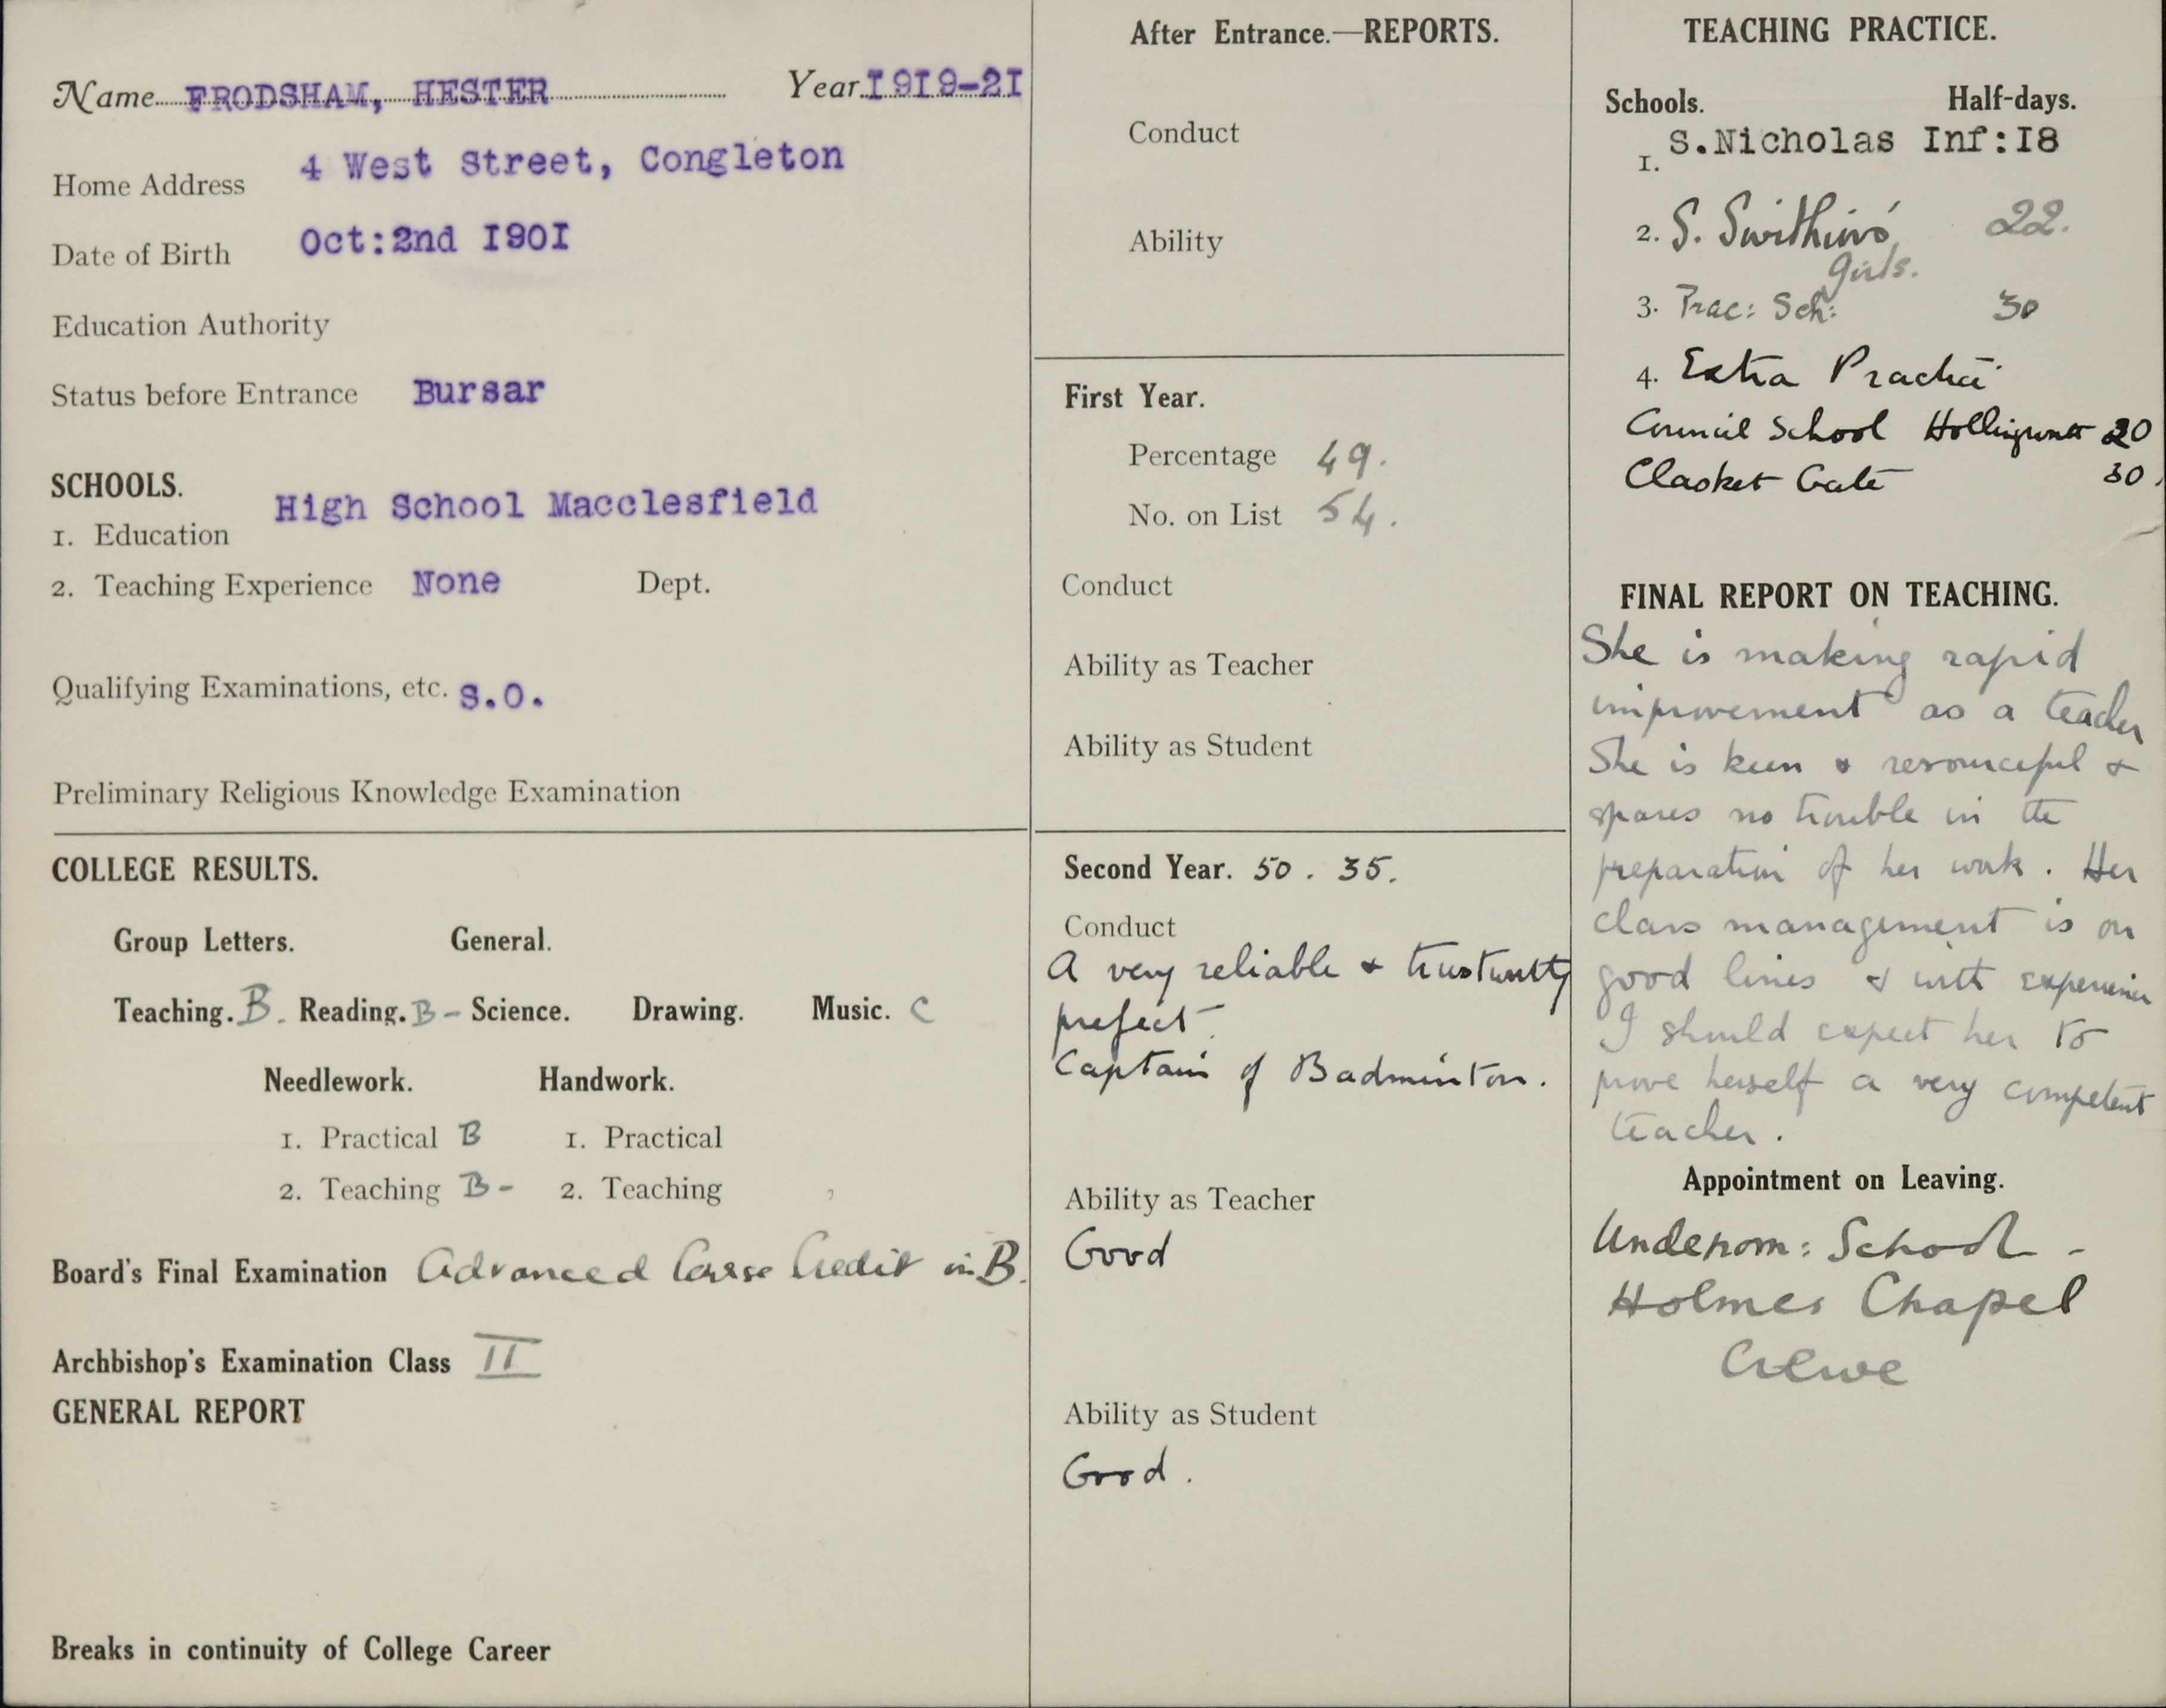 Name FRODSHAM, HESTER Year I9I9-2I
Home Address 4 West Street, Congleton
Date of Birth Oct:2nd I90I
Education Authority
Status before Entrance Bursar
SCHOOLS.
1. Education High School Macclesfield
2. Teaching Experience None Dept.
Qualifying Examinations, etc. S.O.
Preliminary Religious Knowledge Examination
COLLEGE RESULTS.
Group Letters. General.
Teaching. B. Reading. B- Science. Drawing. Music. C
Needlework. Handwork.
1. Practical B 1. Practical
2. Teaching B- 2. Teaching
Board's Final Examination Advanced Course Credit in B.
Archbishop's Examination Class II
GENERAL REPORT
Breaks in continuity of College Career
After Entrance.—REPORTS.
Conduct
Ability
First Year.
Percentage 49.
No. on List 54.
Conduct
Ability as Teacher
Ability as Student
Second Year. 50. 35.
Conduct
A very reliable & trustworthy
prefect.
Captain of Badminton.
Ability as Teacher
Good
Ability as Student
Good.
TEACHING PRACTICE.
Schools. Half-days.
1. S.Nicholas Inf:I8
2. S. Swithin's 22.
girls.
3. Prac: Sch: 30
4. Extra Practice
Council School Hollingworth 20
Clasket Gate 30.
FINAL REPORT ON TEACHING.
She is making rapid
improvement as a teacher
She is keen & resourceful &
spares no trouble in the
preparation of her work. Her
class management is on
good lines & with experience
I should expect her to
prove herself a very competent
teacher.
Appointment on Leaving.
Undenom: School -
Holmes Chapel
Crewe